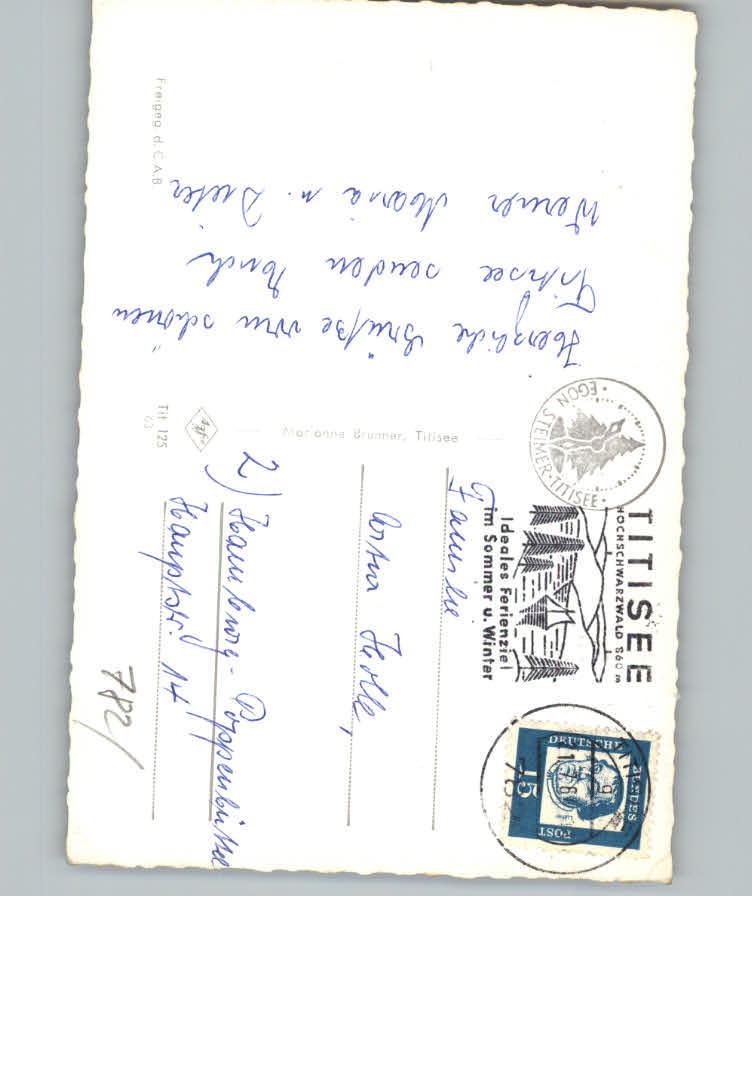 Freigeg. d. C.A.B
Herzliche Grüße vom schönen
Titisee senden Euch
Werner Maria u. Dieter
Tit 125
63
Agfa
Marianne Brunner, Titisee
EGON STEIMER·TITISEE·
TITISEE
HOCHSCHWARZWALD 860 m
Ideales Ferienziel
im Sommer u. Winter
DEUTSCHE
BUNDES
POST
15
Familie
Holle,
2) Hamburg-Poppenbüttel
Hauptstr. 14
782/